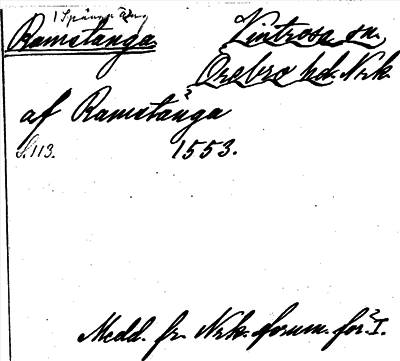 Ramstånga
Vintrosa sn.
Örebro hd. Nrk
af Ramstånga
S. 113. 1553.
Medd. fr. Nrk. fornm. för. I.